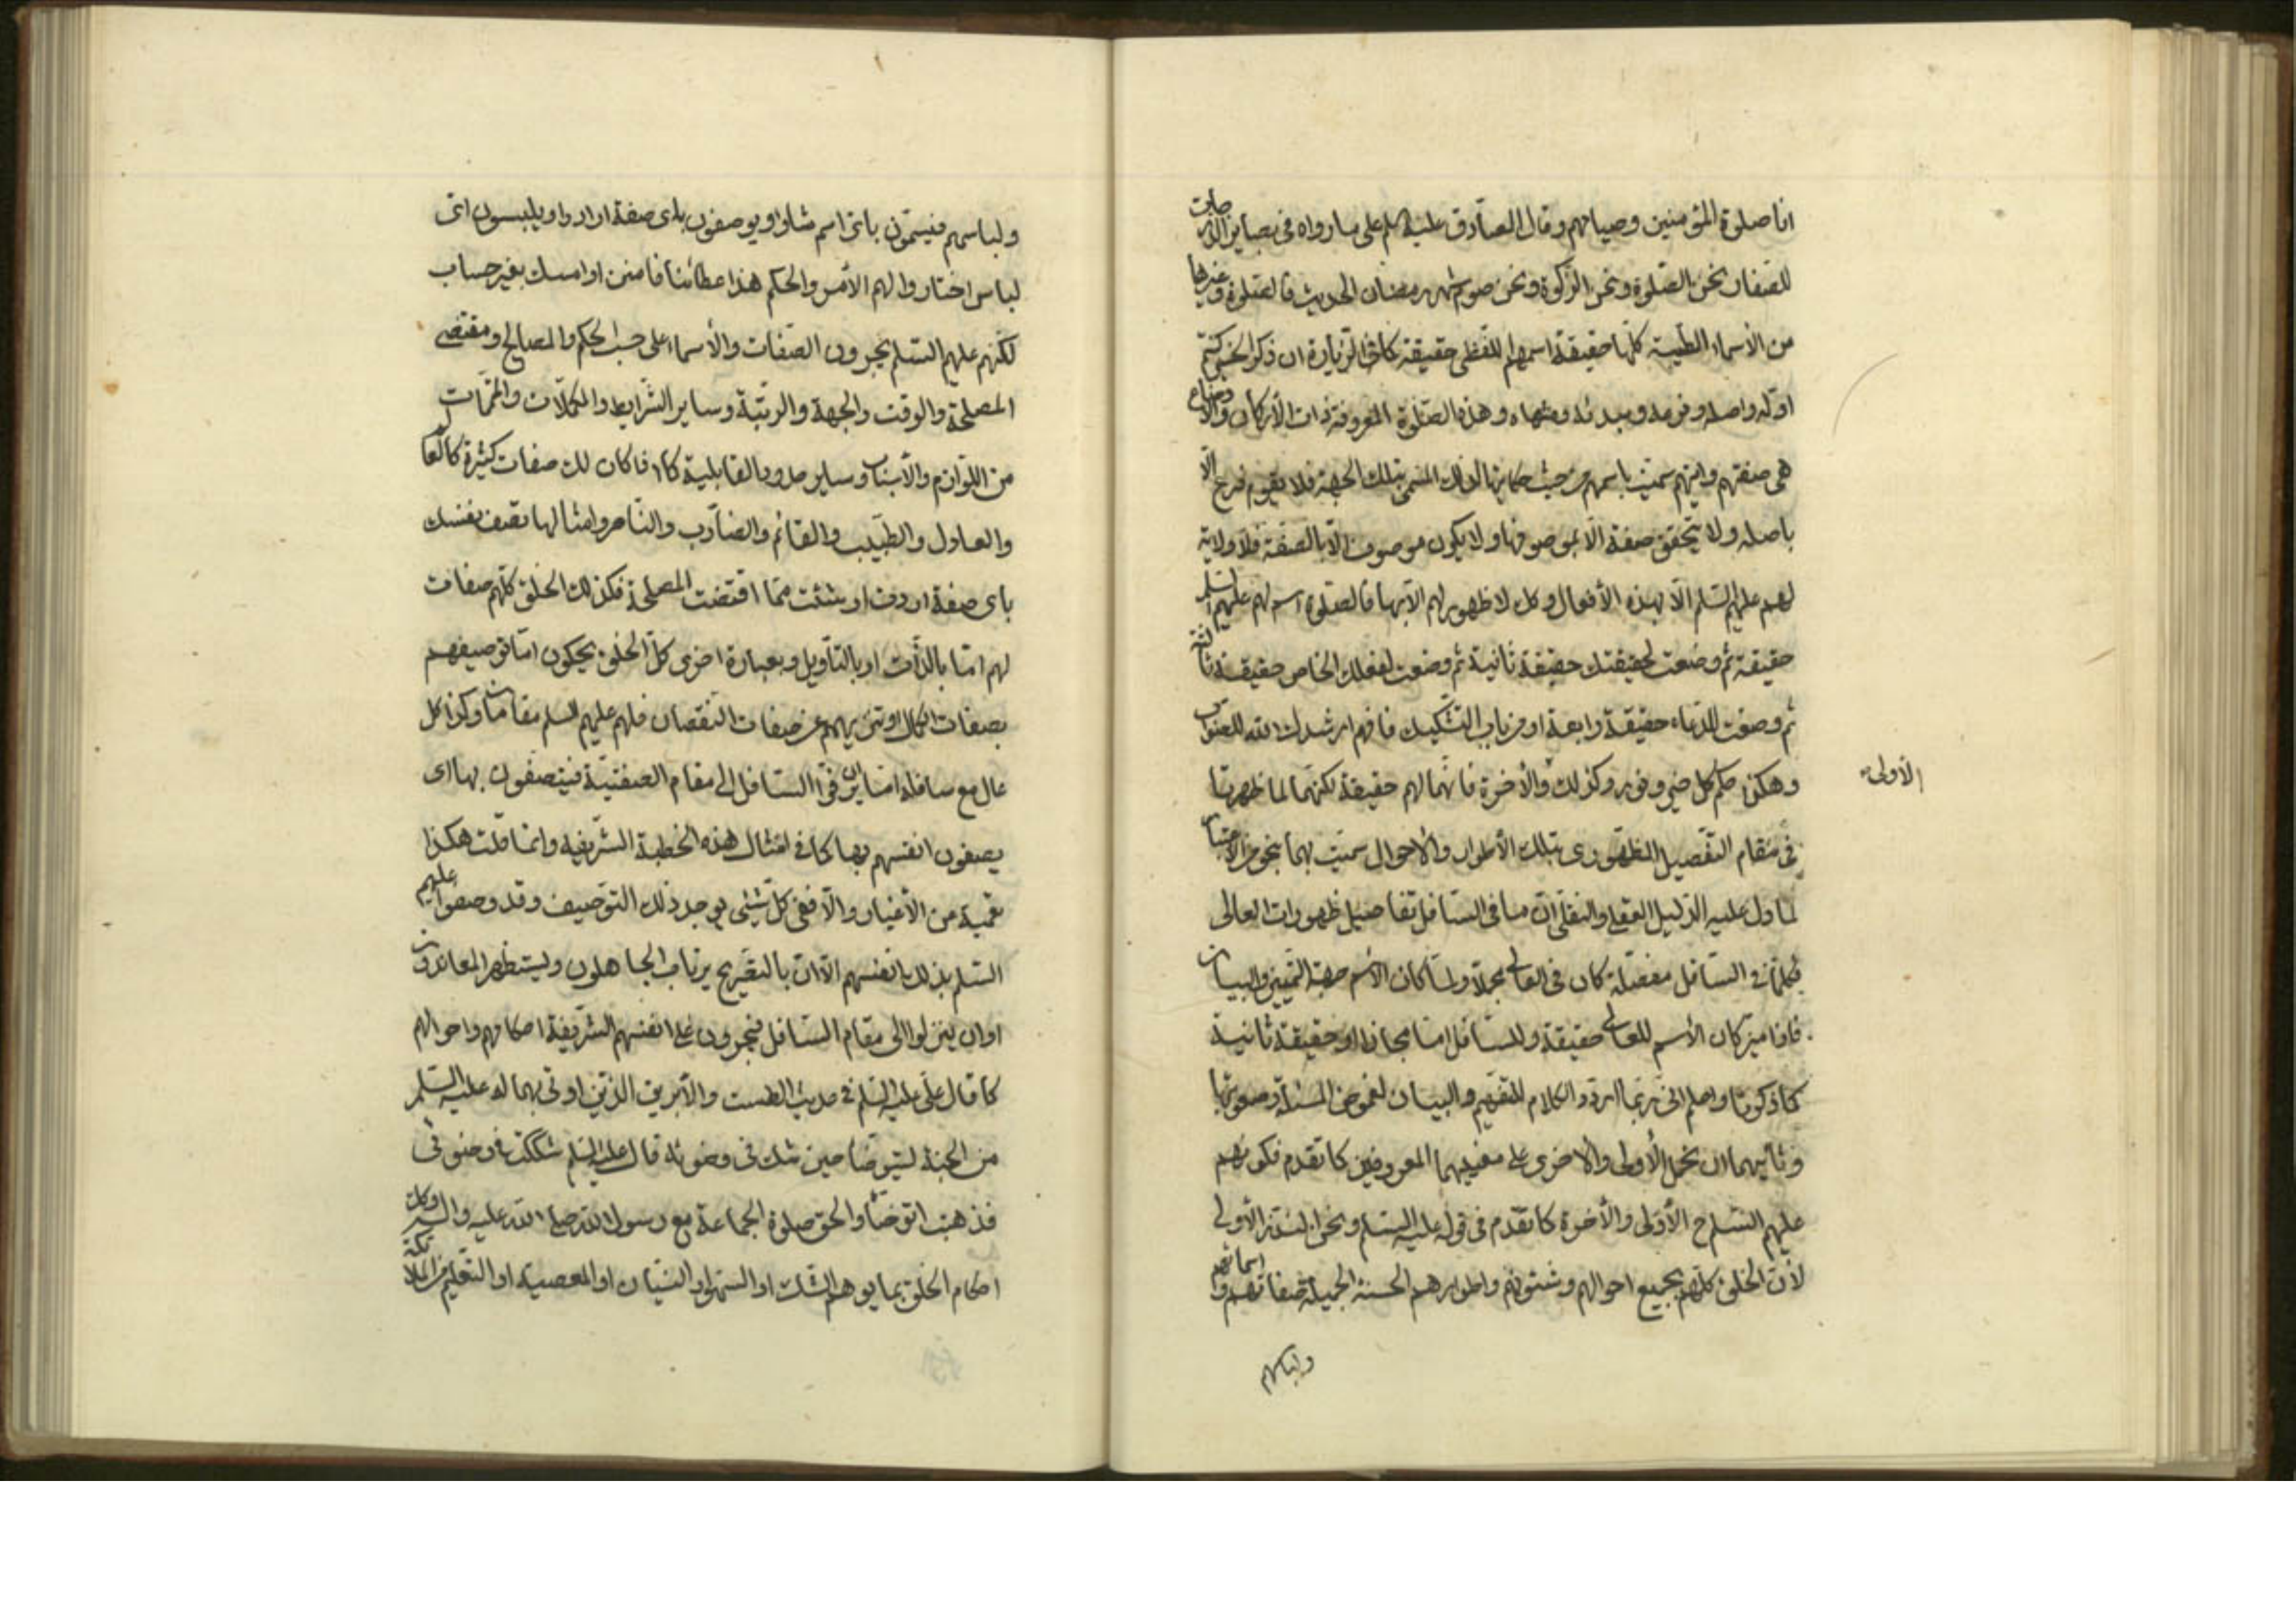 انا صلوة المؤمنين وصيامهم وقال الصادق عليه السلم على ما رواه في بصاير الدرجات
للصفار نحن الصلوة ونحن الزكوة ونحن صوم شهر رمضان الحديث فالصلوة وغيرها
من الأسماء الطيبة كلها حقيقة اسمهم اللفظي حقيقة كما في الزيارة ان ذكر الخير كنتم
اوله واصله وفرعه ومبدئه ومنتهاه وهذه الصلوة المعروفة ذات الأركان والأوضاع
هي صفتهم وايتهم سميت باسمهم من حيث حكايتها لذلك المسمى بتلك الجهة فلا يقوم فرع الا
باصله ولا يتحقق صفة الا بموصوفها ولا يكون موصوف الا بالصفة فلا ولاية
لهم عليهم السلم الا بهذه الأفعال وكل لا ظهور لهم الا بها فالصلوة اسم لهم عليهم السلم
حقيقة ثم وضعت لحقيقتك حقيقة ثانية ثم وضعت لفعلك الخاص حقيقة ثالثة
ثم وضعت للدعاء حقيقة رابعة او من باب التشكيك فافهم ارشدك الله للصواب
وهكذا حكم كل خير ونور وكذلك والأخرة فانهما لهم حقيقة لكنهما لما ظهرتا
الأولى
في مقام التفصيل الظهوري بتلك الأطوار والأحوال سميت بهما بنحو من الأعتبار
لما دل عليه الدليل العقلي والنقلي ان ما في السافل تفاصيل ظهورات العالي
فكلما في السافل مفصلة كان في العالي مجملا ولما كان الأسم جهة التمييز والبيان
فاذا ميز كان الأسم للعالي حقيقة وللسافل اما مجازا او حقيقة ثانية
كما ذكرنا واعلم اني ربما اردد الكلام للتفهيم والبيان لغموض المسئلة وصعوبتها
وثانيهما ان نحمل الأولى والأخرى على معنيهما المعروفين كما تقدم فكونهم
عليهم السلم ح الأولى والأخرة كما تقدم في قوله عليه السلم ونحن السنة الأولى
لأن الخلق كلهم بجميع احوالهم وشئونهم واطوارهم الحسنة الجميلة صفاتهم واسمائهم
ولباسهم
ولباسهم فيسمون باي اسم شاؤا ويوصفون باي صفة ارادوا ويلبسون اي
لباس اختاروا لهم الأمر والحكم هذا عطائنا فامنن او امسك بغير حساب
لكنهم عليهم السلم يجرون الصفات والأسماء على حسب الحكم والمصالح ومقتضى
المصلحة والوقت والجهة والرتبة وساير الشرايط والمكملات والمتممات
من اللوازم والأسباب وساير حدود القابلية كما اذا كان لك صفات كثيرة كالعالم
والعادل والطبيب والقائم والضارب والناصر وامثالها تصف نفسك
باي صفة اردت او شئت مما اقتضت المصلحة فكذلك الخلق كلهم صفات
لهم اما بالذات او بالتأويل وبعبارة اخرى كل الخلق يحكون اما توصيفهم
بصفات الكمال او تنزيههم عن صفات النقصان فلهم عليهم السلم مقامان وكذا كل
عال مع سافله اما ان يرقوا السافل الى مقام الصفتية فيتصفون بها اي
يصفون انفسهم بها كما في امثال هذه الخطبة الشريفة وانما قلت هكذا
تعمية من الأغيار والا ففي كل شيئ يوجد ذلك التوصيف وقد وصفوا عليهم
السلم بذلك بانفسهم الا ان بالتصريح يرتاب الجاهلون ويستظهر المعاندون
او ان ينزلوا الى مقام السافل فيجرون على انفسهم الشريفة احكامهم واحوالهم
كما قال علي عليه السلم في حديث الطست والأبريق الذين اوتي بهما له عليه السلم
من الجنة ليتوضأ حين شك في وضوئه قال عليه السلم شككت في وضوئي
فذهبت اتوضأ والحق صلوة الجماعة مع رسول الله صلى الله عليه واله وكذلك
احكام الخلق بما يوهم الشك او السهو او النسيان او المعصية او التعليم من الملائكة